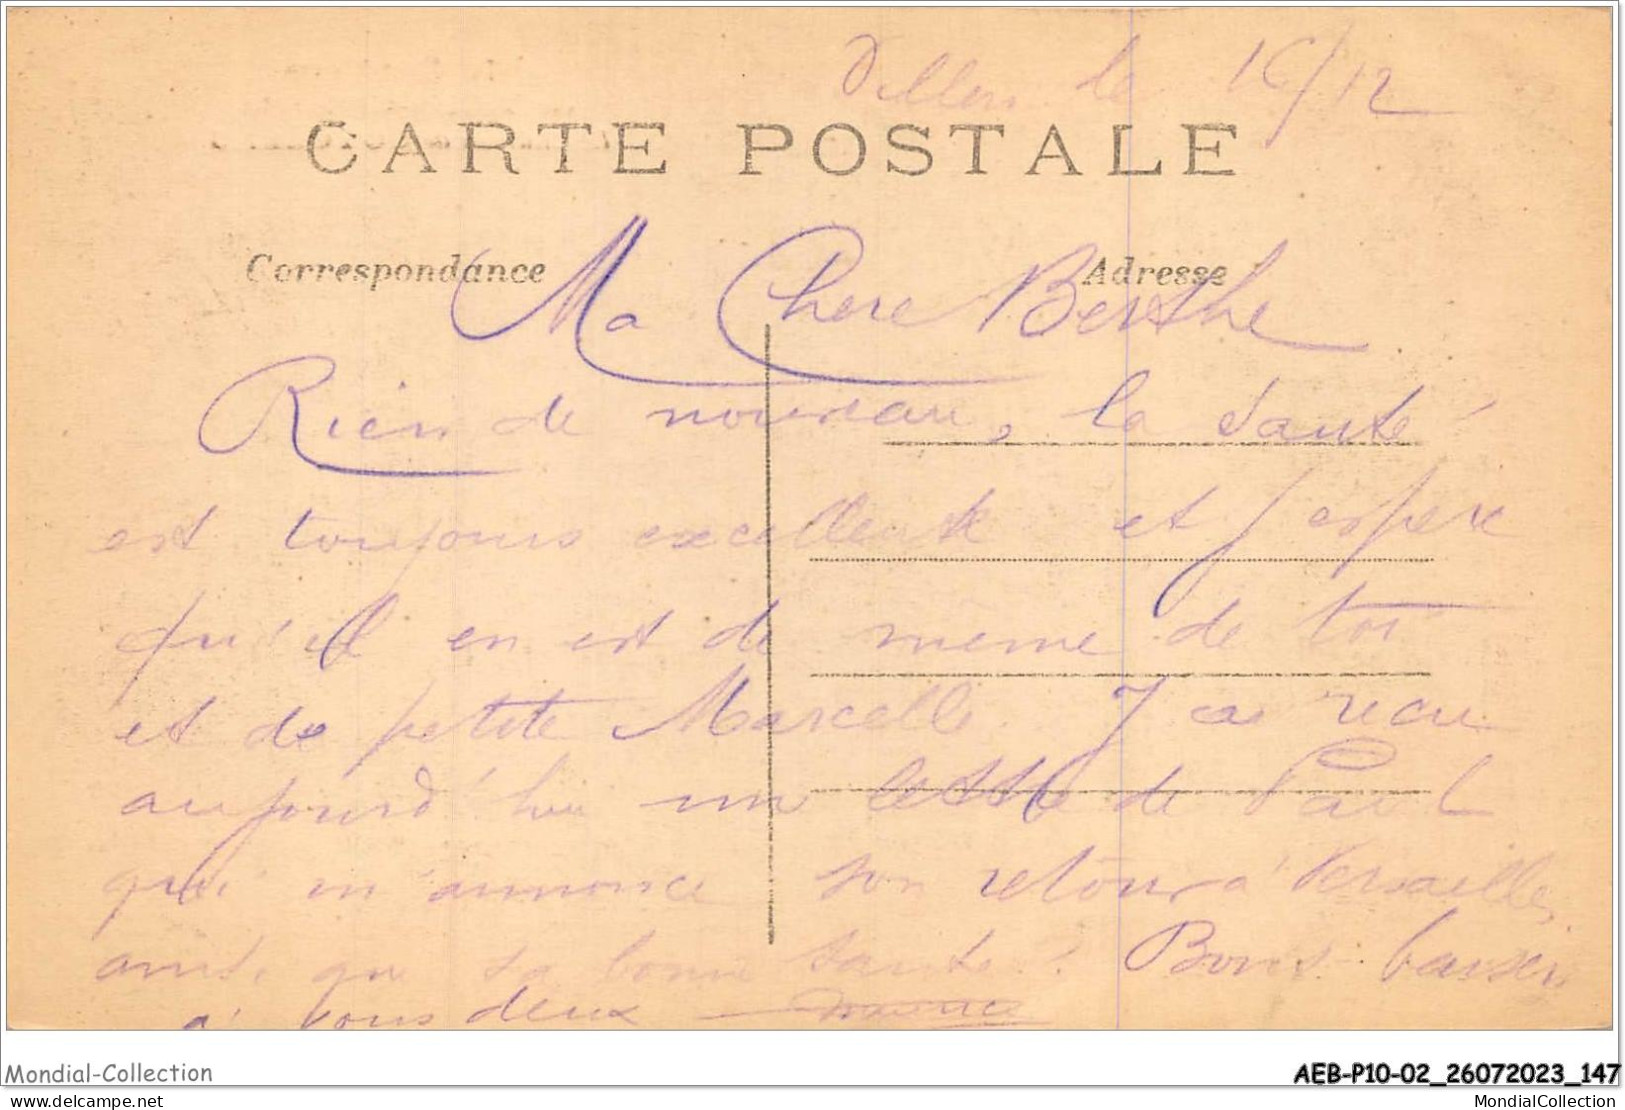 le 16/12
CARTE POSTALE
Correspondance
Adresse
Ma Chere Berthe
Rien de nouveau, la santé
est toujours excellente et j'espere
qu'il en est de meme de toi
et de petite Marcelle. J'ai recu
aujourd'hui une lettre de Paul
qui m'annonce son retour à Versailles,
ainsi que sa bonne santé. Bons baisers
à vous deux
Mondial-Collection
AEB-P10-02_26072023_147
delcampe.net
MondialCollection